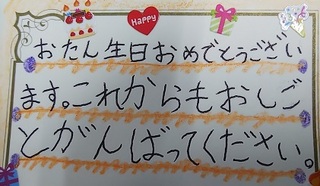 Happy
おたん生日おめでとうござい
ます。これからもおしご
とがんばってください。